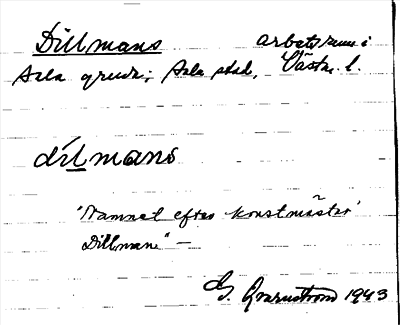 Dillmans arbetsrum i
Sala gruva, Sala stad, Västm. l.
dílmans
"Namnet efter konstmäster
Dillman" —
G. Qvarnström 1943